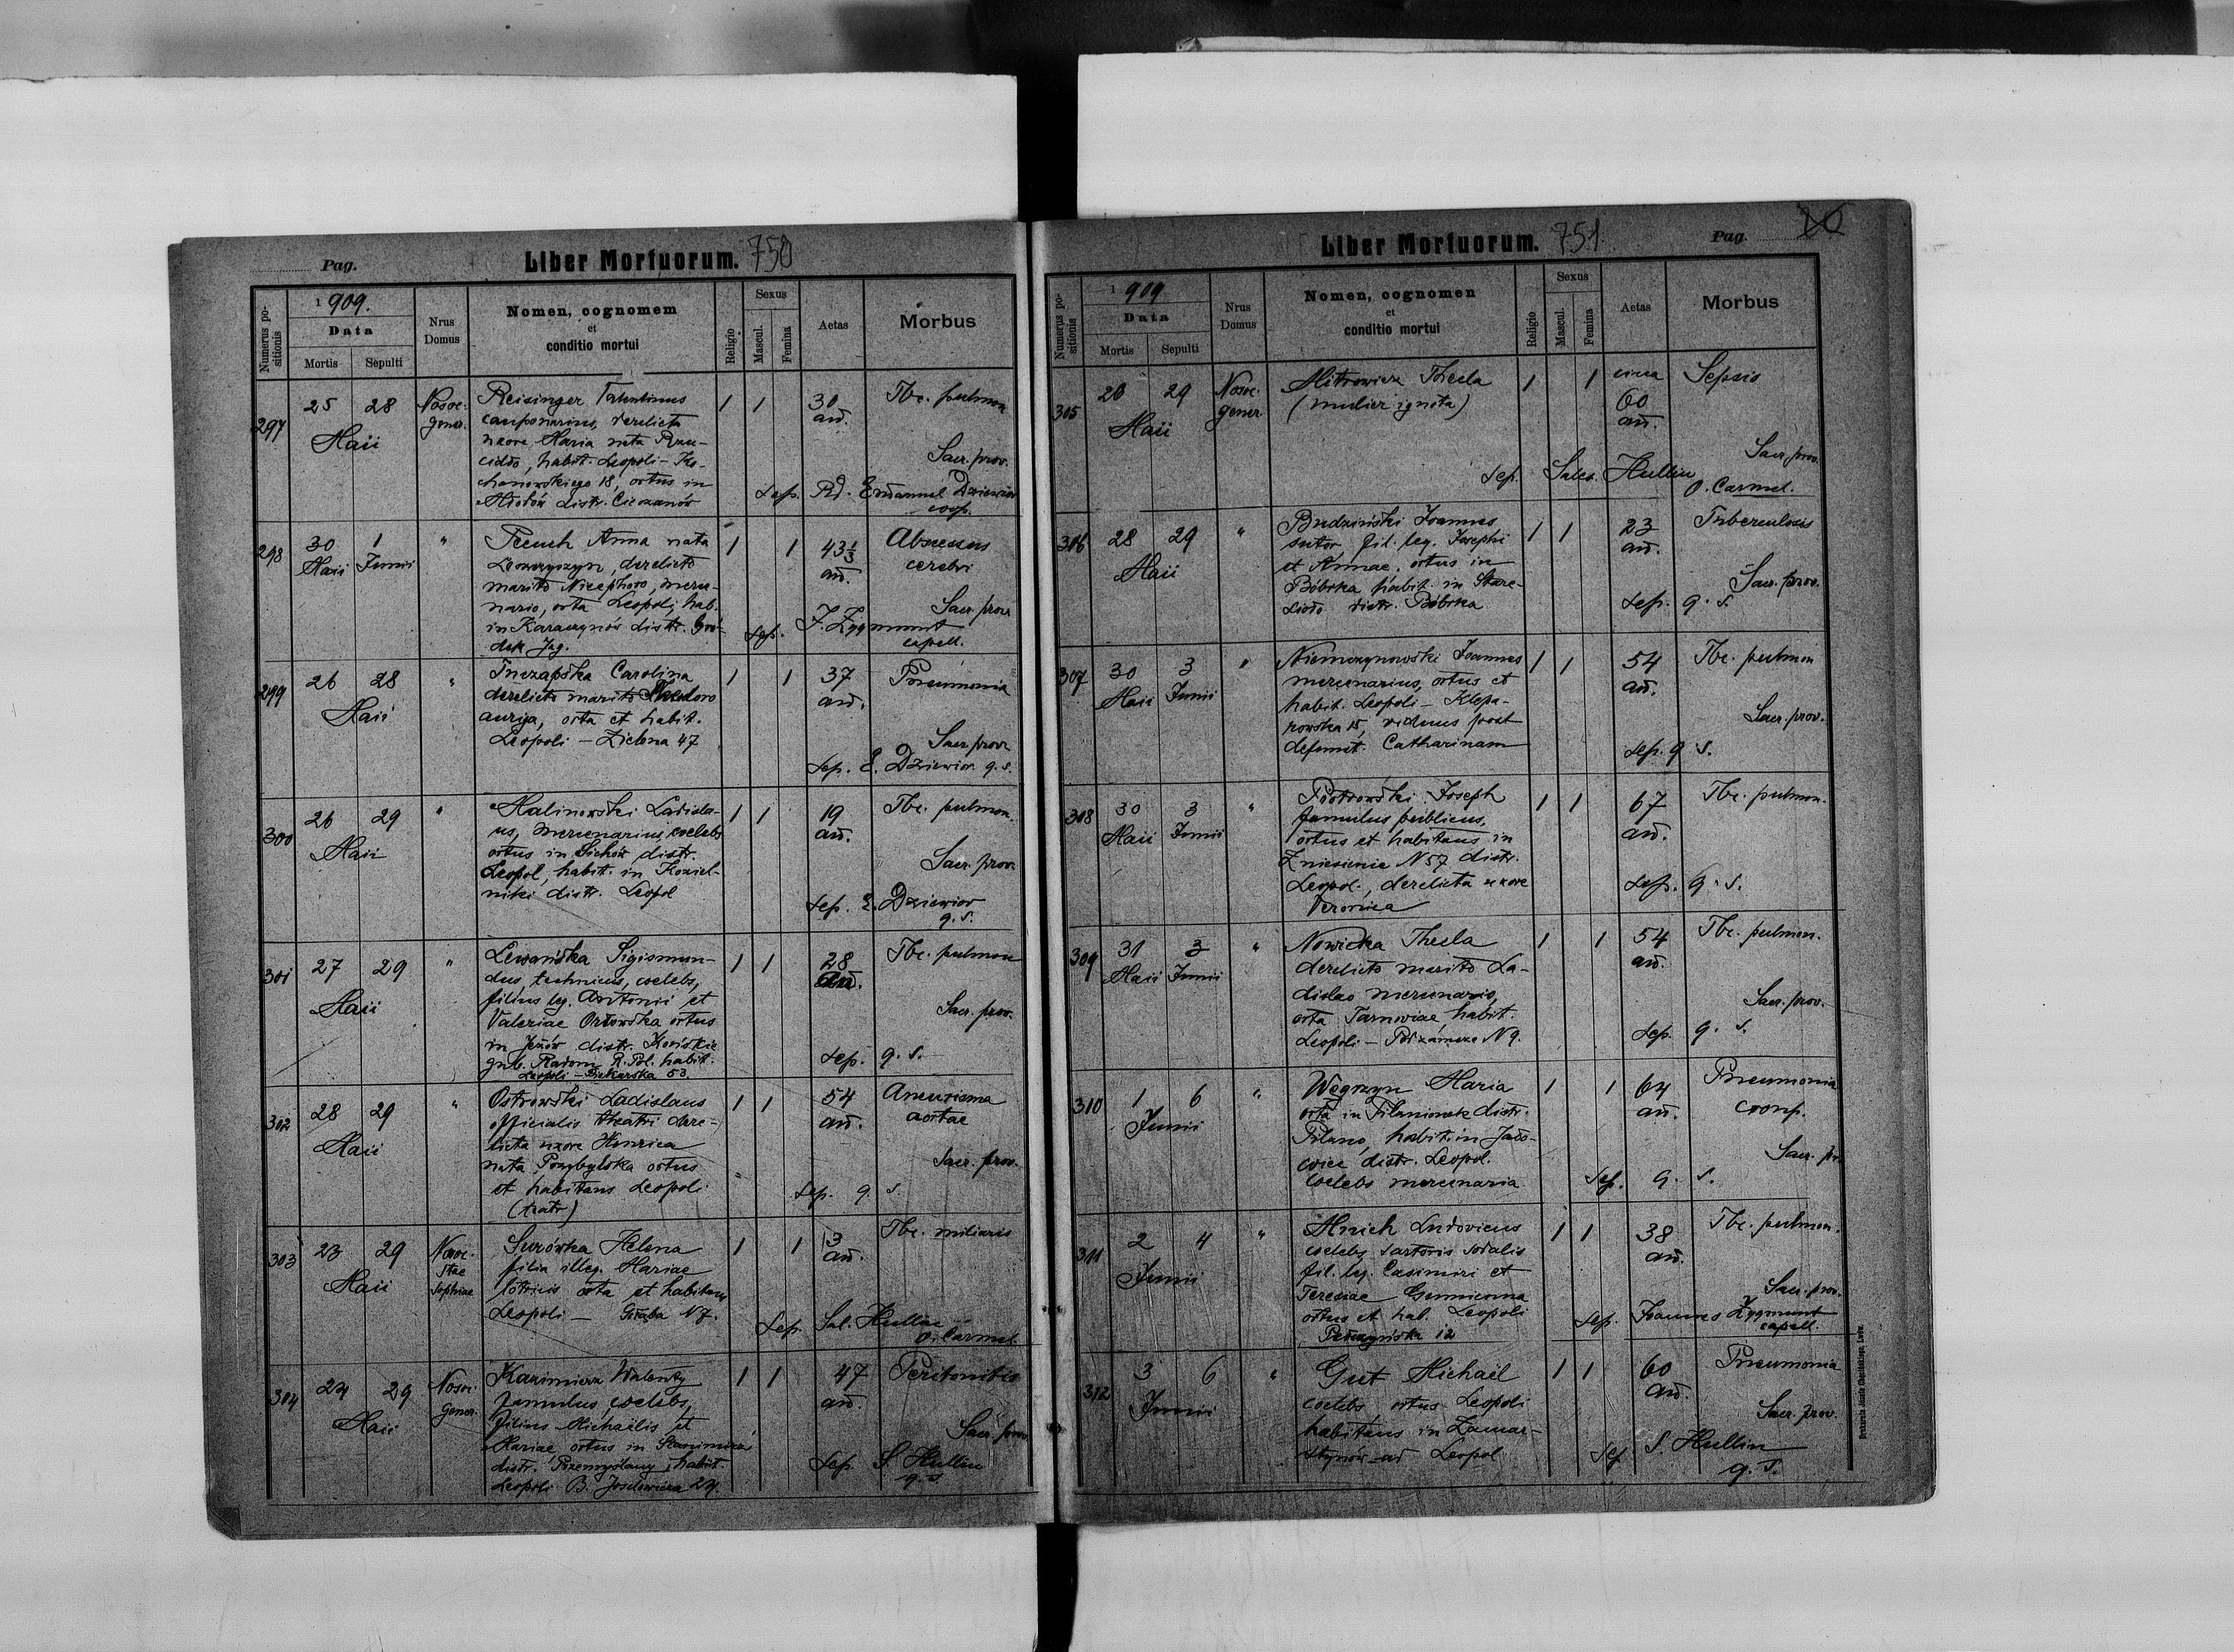 Pag.
Liber Mortuorum. 750
Numerus positionis
1909.
Data
Mortis
Sepulti
Nrus Domus
Nomen, cognomem
et
conditio mortui
Religio
Sexus
Mascul.
Femina
Aetas
Morbus
297
25 28
Maii
Nosoc. gener.
Reisinger Valentinus
cauponarius, derelicta
uxore Maria nata
habit. Leopoli - Ko-
chanowskiego 18, ortus in
distr. Cieszanów
1 1
30 an̄.
Tbc. pulmon
Sacr. prov.
Sep. Rd. Emanuel Dziewior
coop.
298
30 Maii
1 Junii
"
Anna nata
derelicto
marito Nicephoro, merce-
nario, orta Leopoli, hab.
in Karaczynów distr. Gró-
dek Jag.
1 1
43⅓ an̄.
Abscessus
cerebri
Sacr. prov
Sep. J. Zygmunt
capell.
299
26 28
Maii
"
Carolina
derelicto marito Theodoro
auriga, orta et habit.
Leopoli - Zielona 47
1 1
37 an̄.
Pneumonia
Sacr. prov
Sep. E. Dziewior. q. s.
300
26 29
Maii
"
Malinowski Ladisla-
us, mercenarius, coelebs
ortus in Sichów distr.
Leopol, habit. in Koziel-
niki distr. Leopol
1 1
19 an̄.
Tbc. pulmon.
Sacr. prov.
Sep. E. Dziewior
q. s.
301
27 29
Maii
"
Lewańska Sigismun-
dus, technicus, coelebs,
filius leg. Antonii et
Valeriae Orłowska ortus
in Jeżów distr. Końskie
gub. Radom R. Pol. habit.
Leopoli - Piekarska 53.
1 1
28 an̄.
Tbc. pulmon
Sacr. prov.
Sep. q. s.
302
28 29
Maii
"
Ostrowski Ladislaus
officialis theatri dere-
licta uxore Henrica
nata Przybylska ortus
et habitans Leopoli
(teatr)
1 1
54 an̄.
Aneurisma
aortae
Sacr. prov.
Sep. q. s.
303
23 29
Maii
Nosoc. Stae Sophiae
Surówka Helena
filia illeg. Mariae
lotricis orta et habitans
Leopoli - N 7.
1 1
13 an̄.
Tbc. miliaris
Sep. Sal. Hullin
O. Carmel.
304
24 29
Maii
Nosoc. gener.
Kazimierz Walenty
famulus, coelebs,
filius Michaelis et
Mariae, ortus in
distr. Przemyślany, habit
Leopoli B. Joselewicza 24.
1 1
47 an̄.
Peritonitis
Sacr. prov
Sep. S. Hullin
q. s.
Liber Mortuorum. 751
Pag.
Numerus positionis
1909
Data
Mortis
Sepulti
Nrus Domus
Nomen, cognomen
et
conditio mortui
Religio
Sexus
Mascul.
Femina
Aetas
Morbus
305
26 29
Maii
Nosoc. gener
Mitrowicz Thecla
(mulier ignota)
1 1
circa 60 an̄.
Sepsis
Sacr. prov.
Sep. Sales. Hullin
O. Carmel.
306
28 29
Maii
"
Budziński Joannes
sutor, fil. leg. Josephi
et Annae, ortus in
Bóbrka habit. in Stare-
distr. Bóbrka
1 1
23 an̄.
Tuberculosis
Sacr. prov.
Sep. q. s.
307
30 Maii
3 Junii
"
Niemczynowski Joannes
mercenarius, ortus et
habit. Leopoli - Klepa-
rowska 15, viduus post
defunct. Catharinam
1 1
54 an̄.
Tbc. pulmon
Sacr. prov.
Sep. q. s.
308
30 Maii
3 Junii
"
Piotrowski Joseph
famulus publicus,
ortus et habitans in
Zniesienie N 57 distr.
Leopol., derelicta uxore
Veronica
1 1
67 an̄.
Tbc. pulmon.
Sep. q. s.
309
31 Maii
3 Junii
"
Nowicka Thecla
derelicto marito La-
dislao mercenario,
orta Tarnoviae, habit.
Leopoli - Podzamcze N 9.
1 1
54 an̄.
Tbc. pulmon.
Sacr. prov.
Sep. q. s.
310
1 6
Junii
"
Węgrzyn Maria
orta in distr.
Pilzno, habit. in
distr. Leopol.
coelebs mercenaria
1 1
64 an̄.
Pneumonia
croup.
Sacr. pr.
Sep. q. s.
311
2 4
Junii
"
Ludovicus
coelebs, sartoris sodalis
fil. leg. Casimiri et
Teresiae
ortus et hab. Leopoli
Pełczyńska 12
1 1
38 an̄.
Tbc. pulmon.
Sacr. prov.
Sep. Joannes Zygmunt
capell.
312
3 6
Junii
"
Gut Michaël
coelebs ortus Leopoli
habitans in Zamar-
stynów ad Leopol
1 1
60 an̄.
Pneumonia
Sacr. prov.
Sep. S. Hullin
q. s.